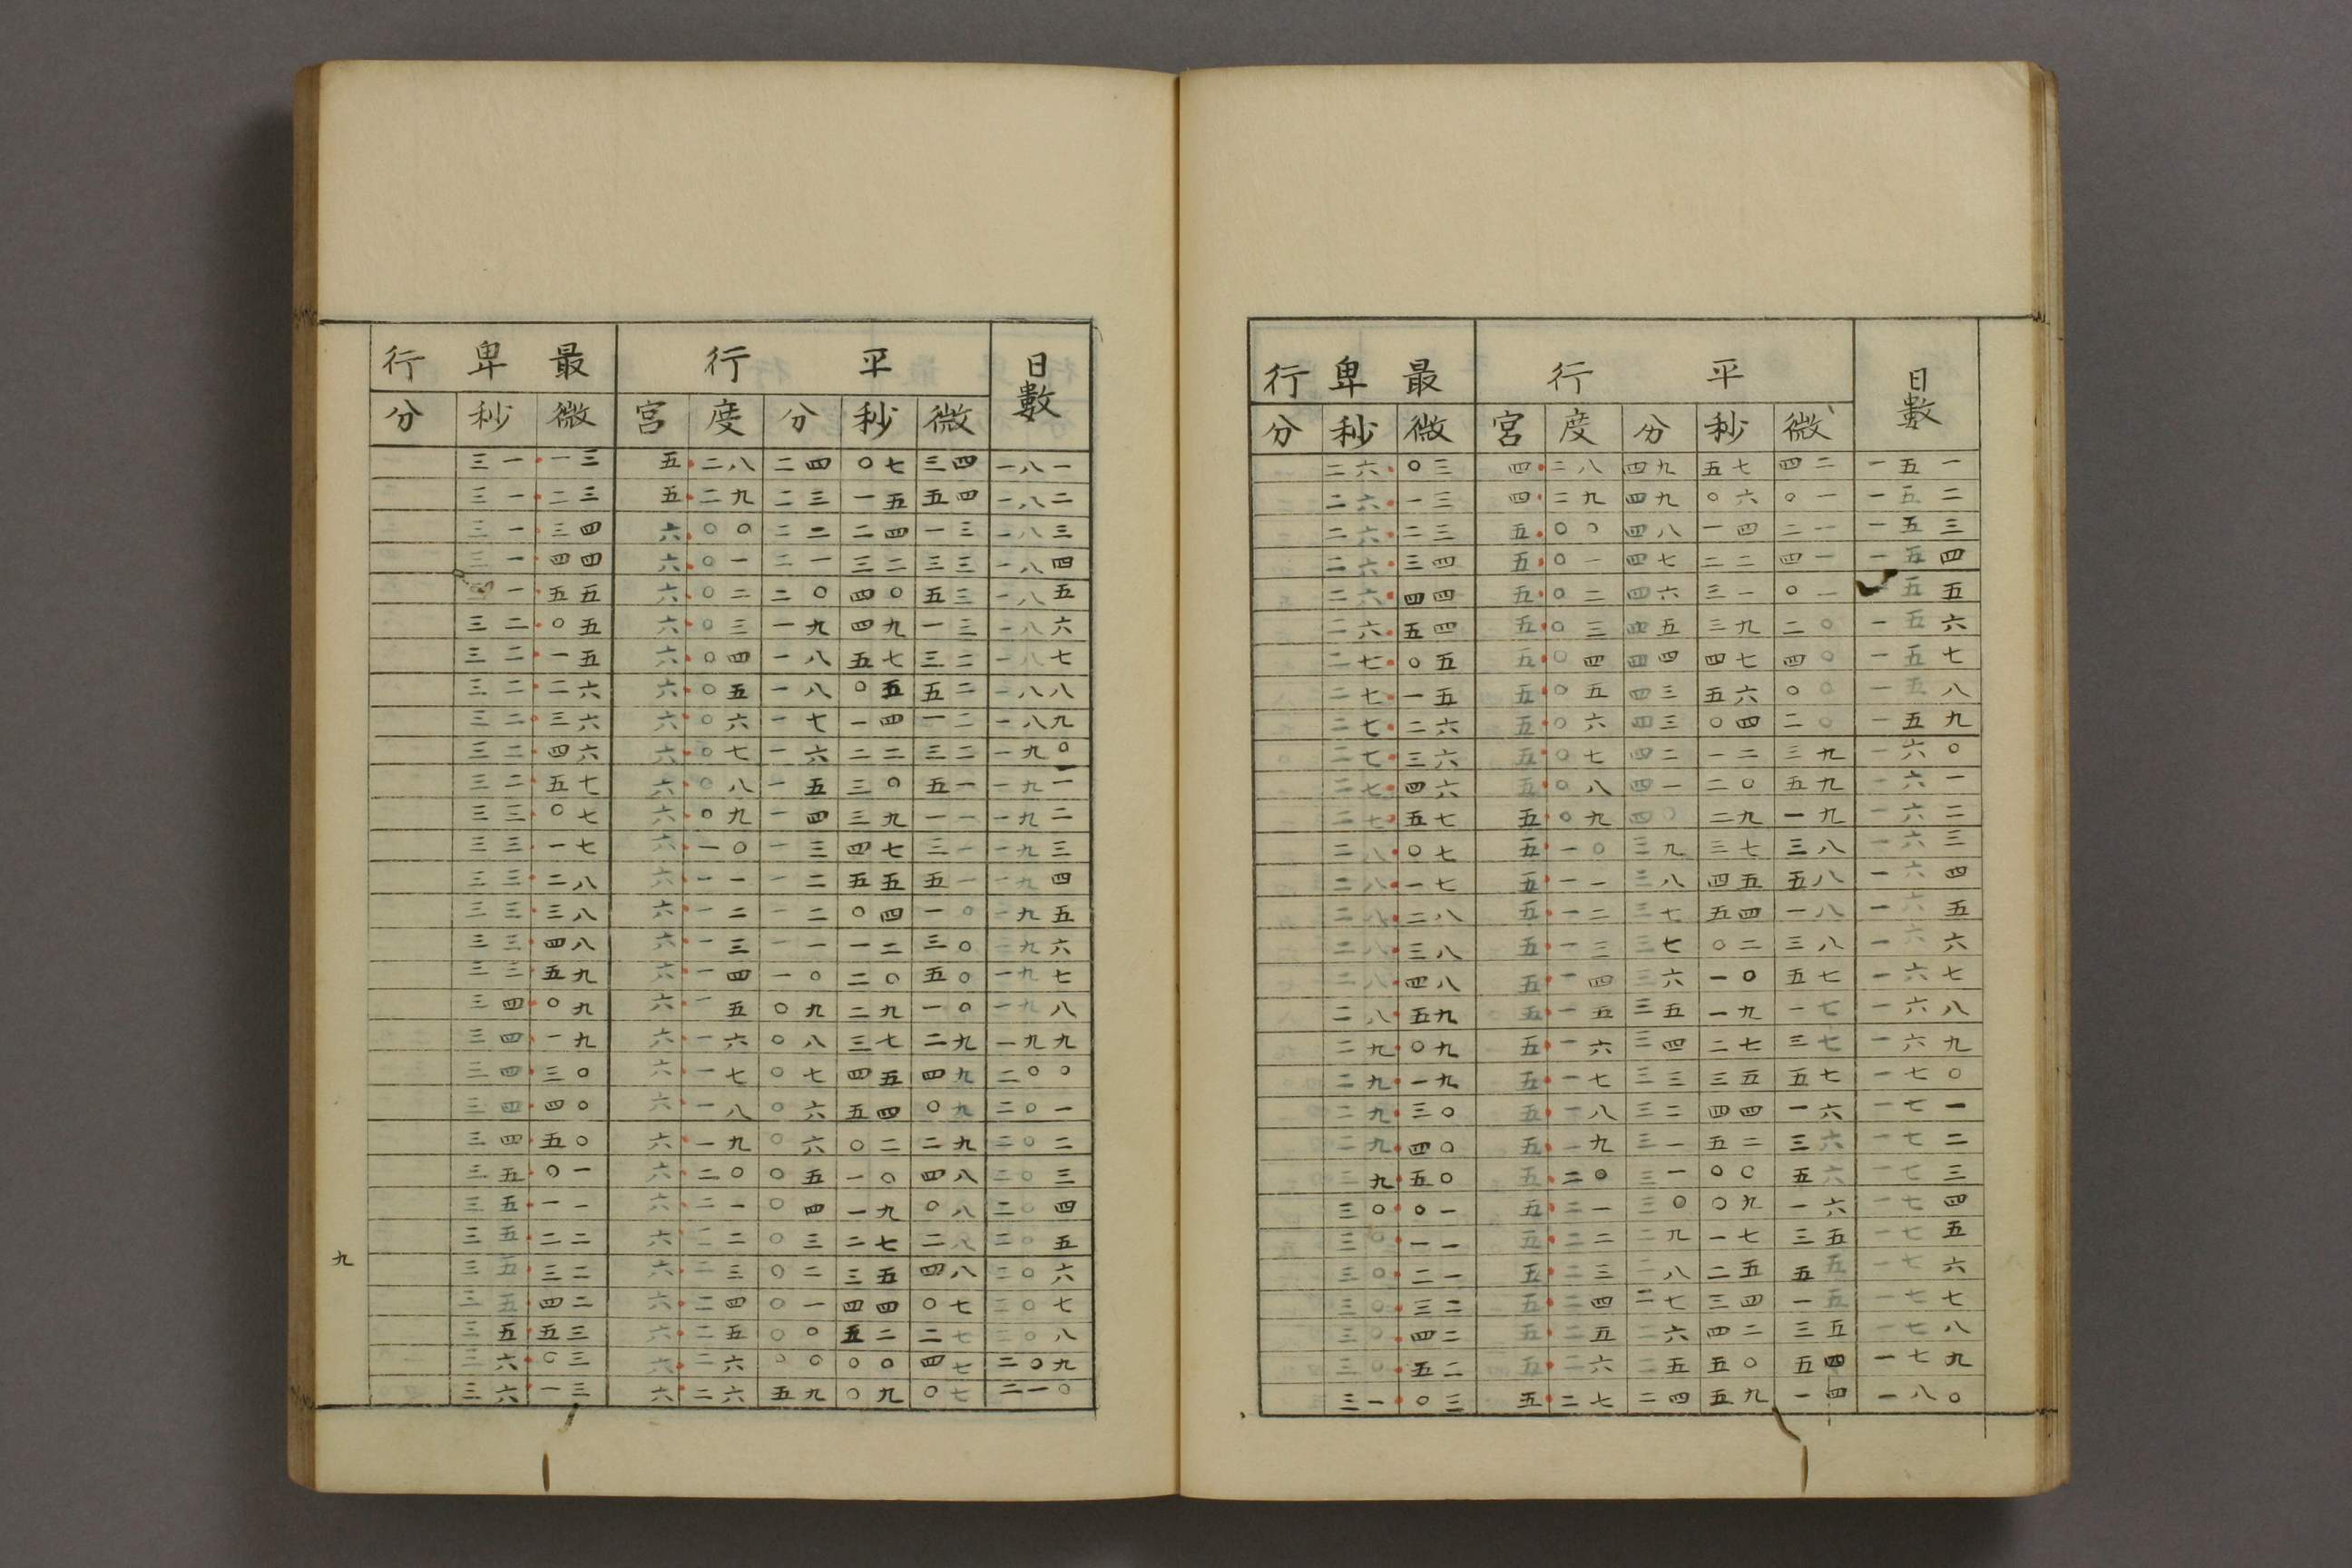 日數 平行 最卑行
分 秒 微 宮 度 分 秒 微
二六 〇三 四 二八 四九 五七 四二 一五一
二六 一三 四 二九 四九 〇六 〇一 一五二
二六 二三 五 〇〇 四八 一四 二一 一五三
二六 三四 五 〇一 四七 二二 四一 一五四
二六 四四 五 〇二 四六 三一 〇一 五五
二六 五四 五 〇三 四五 三九 二〇 一五六
二七 〇五 五 〇四 四四 四七 四〇 一五七
二七 一五 五 〇五 四三 五六 〇〇 一五八
二七 二六 五 〇六 四三 〇四 二〇 一五九
二七 三六 五 〇七 四二 一二 三九 一六〇
二七 四六 五 〇八 四一 二〇 五九 一六一
二七 五七 五 〇九 四〇 二九 一九 一六二
二八 〇七 五 一〇 三九 三七 三八 一六三
二八 一七 五 一一 三八 四五 五八 一六四
二八 二八 五 一二 三七 五四 一八 一六五
二八 三八 五 一三 三七 〇二 三八 一六六
二八 四八 五 一四 三六 一〇 五七 一六七
二八 五九 五 一五 三五 一九 一七 一六八
二九 〇九 五 一六 三四 二七 三七 一六九
二九 一九 五 一七 三三 三五 五七 一七〇
二九 三〇 五 一八 三二 四四 一六 一七一
二九 四〇 五 一九 三一 五二 三六 一七二
二九 五〇 五 二〇 三一 〇〇 五六 一七三
三〇 〇一 五 二一 三〇 〇九 一六 一七四
三〇 一一 五 二二 二九 一七 三五 一七五
三〇 二一 五 二三 二八 二五 五五 一七六
三〇 三二 五 二四 二七 三四 一五 一七七
三〇 四二 五 二五 二六 四二 三五 一七八
三〇 五二 五 二六 二五 五〇 五四 一七九
三一 〇三 五 二七 二四 五九 一四 一八〇
日數 平行 最卑行
分 秒 微 宮 度 分 秒 微
三一 一三 五 二八 二四 〇七 三四 一八一
三一 二三 五 二九 二三 一五 五四 一八二
三一 三四 六 〇〇 二二 二四 一三 一八三
三一 四四 六 〇一 二一 三二 三三 一八四
一 五五 六 〇二 二〇 四〇 五三 一八五
三二 〇五 六 〇三 一九 四九 一三 一八六
三二 一五 六 〇四 一八 五七 三二 一八七
三二 二六 六 〇五 一八 〇五 五二 一八八
三二 三六 六 〇六 一七 一四 一二 一八九
三二 四六 六 〇七 一六 二二 三二 一九〇
三二 五七 六 〇八 一五 三〇 五一 一九一
三三 〇七 六 〇九 一四 三九 一一 一九二
三三 一七 六 一〇 一三 四七 三一 一九三
三三 二八 六 一一 一二 五五 五一 一九四
三三 三八 六 一二 一二 〇四 一〇 一九五
三三 四八 六 一三 一一 一二 三〇 一九六
三三 五九 六 一四 一〇 二〇 五〇 一九七
三四 〇九 六 一五 〇九 二九 一〇 一九八
三四 一九 六 一六 〇八 三七 二九 一九九
三四 三〇 六 一七 〇七 四五 四九 二〇〇
三四 四〇 六 一八 〇六 五四 〇九 二〇一
三四 五〇 六 一九 〇六 〇二 二九 二〇二
三五 〇一 六 二〇 〇五 一〇 四八 二〇三
三五 一一 六 二一 〇四 一九 〇八 二〇四
三五 二二 六 二二 〇三 二七 二八 二〇五
三五 三二 六 二三 〇二 三五 四八 二〇六
三五 四二 六 二四 〇一 四四 〇七 二〇七
三五 五三 六 二五 〇〇 五二 二七 二〇八
三六 〇三 六 二六 〇〇 〇〇 四七 二〇九
三六 一三 六 二六 五九 〇九 〇七 二一〇
九